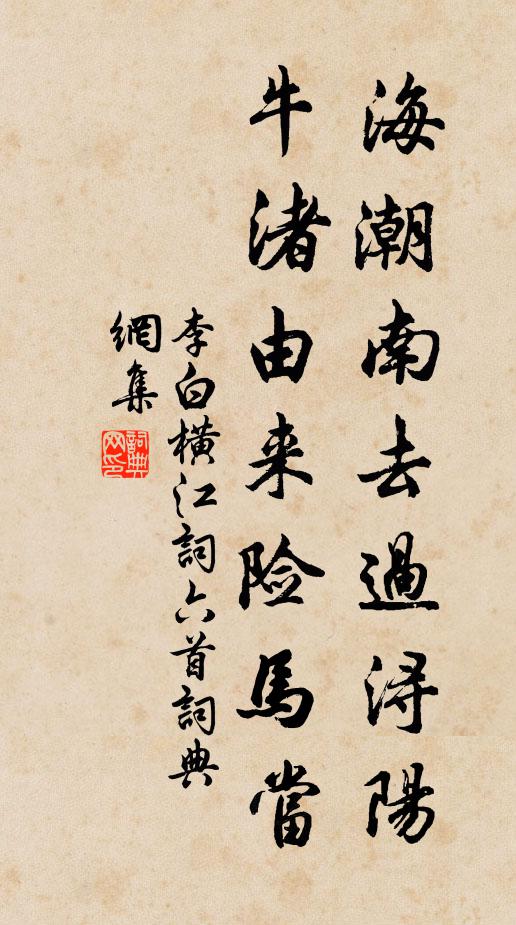 海潮南去過浔陽
牛渚由来险馬當
李白橫江詞六首詞典
網集
詞典
网印